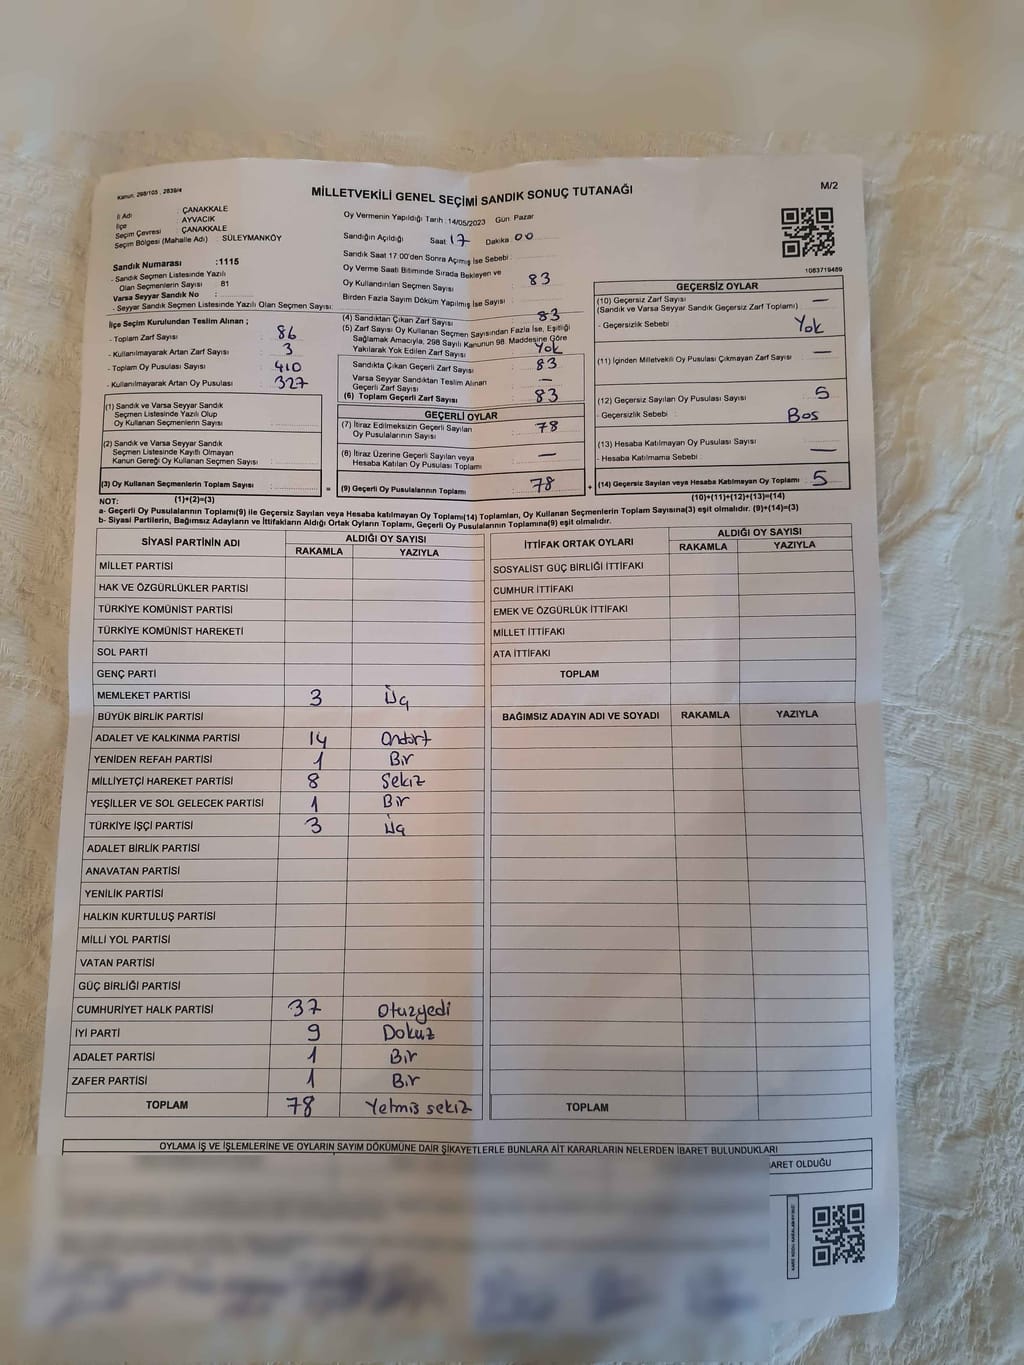 Kanun: 298/105 , 2839/4
MİLLETVEKİLİ GENEL SEÇİMİ SANDIK SONUÇ TUTANAĞI
M/2
İl Adı : ÇANAKKALE
İlçe : AYVACIK
Seçim Çevresi : ÇANAKKALE
Seçim Bölgesi (Mahalle Adı) : SÜLEYMANKÖY
Oy Vermenin Yapıldığı Tarih : 14/05/2023 Gün: Pazar
Sandığın Açıldığı Saat 17 Dakika 00
Sandık Saat 17:00'den Sonra Açımış İse Sebebi :
Oy Verme Saati Bitiminde Sırada Bekleyen ve
Oy Kullandırılan Seçmen Sayısı : 83
Birden Fazla Sayım Döküm Yapılmış İse Sayısı :
1083719489
Sandık Numarası :1115
- Sandık Seçmen Listesinde Yazılı
Olan Seçmenlerin Sayısı 81
Varsa Seyyar Sandık No :
- Seyyar Sandık Seçmen Listesinde Yazılı Olan Seçmen Sayısı:
İlçe Seçim Kurulundan Teslim Alınan ;
- Toplam Zarf Sayısı : 86
- Kullanılmayarak Artan Zarf Sayısı : 3
- Toplam Oy Pusulası Sayısı : 410
- Kullanılmayarak Artan Oy Pusulası : 327
(1) Sandık ve Varsa Seyyar Sandık
Seçmen Listesinde Yazılı Olup
Oy Kullanan Seçmenlerin Sayısı :
(2) Sandık ve Varsa Seyyar Sandık
Seçmen Listesinde Kayıtlı Olmayan
Kanun Gereği Oy Kullanan Seçmen Sayısı :
(3) Oy Kullanan Seçmenlerin Toplam Sayısı :
(4) Sandıktan Çıkan Zarf Sayısı : 83
(5) Zarf Sayısı Oy Kullanan Seçmen Sayısından Fazla İse, Eşitliği
Sağlamak Amacıyla, 298 Sayılı Kanunun 98. Maddesine Göre
Yakılarak Yok Edilen Zarf Sayısı : Yok
Sandıkta Çıkan Geçerli Zarf Sayısı : 83
Varsa Seyyar Sandıktan Teslim Alınan
Geçerli Zarf Sayısı : —
(6) Toplam Geçerli Zarf Sayısı : 83
GEÇERLİ OYLAR
(7) İtiraz Edilmeksizin Geçerli Sayılan
Oy Pusulalarının Sayısı : 78
(8) İtiraz Üzerine Geçerli Sayılan veya
Hesaba Katılan Oy Pusulası Toplamı : —
= (9) Geçerli Oy Pusulalarının Toplamı : 78
GEÇERSİZ OYLAR
(10) Geçersiz Zarf Sayısı
(Sandık ve Varsa Seyyar Sandık Geçersiz Zarf Toplamı) : —
- Geçersizlik Sebebi : Yok
(11) İçinden Milletvekili Oy Pusulası Çıkmayan Zarf Sayısı : —
(12) Geçersiz Sayılan Oy Pusulası Sayısı : 5
- Geçersizlik Sebebi : Bos
(13) Hesaba Katılmayan Oy Pusulası Sayısı : —
- Hesaba Katılmama Sebebi :
+ (14) Geçersiz Sayılan veya Hesaba Katılmayan Oy Toplamı : 5
NOT: (1)+(2)=(3)
(10)+(11)+(12)+(13)=(14)
a- Geçerli Oy Pusulalarının Toplamı(9) ile Geçersiz Sayılan veya Hesaba Katılmayan Oy Toplamı(14) Toplamları, Oy Kullanan Seçmenlerin Toplam Sayısına(3) eşit olmalıdır. (9)+(14)=(3)
b- Siyasi Partilerin, Bağımsız Adayların ve İttifakların Aldığı Ortak Oyların Toplamı, Geçerli Oy Pusulalarının Toplamına(9) eşit olmalıdır.
SİYASİ PARTİNİN ADI ALDIĞI OY SAYISI
RAKAMLA YAZIYLA
MİLLET PARTİSİ
HAK VE ÖZGÜRLÜKLER PARTİSİ
TÜRKİYE KOMÜNİST PARTİSİ
TÜRKİYE KOMÜNİST HAREKETİ
SOL PARTİ
GENÇ PARTİ
MEMLEKET PARTİSİ 3 Üç
BÜYÜK BİRLİK PARTİSİ
ADALET VE KALKINMA PARTİSİ 14 Ondört
YENİDEN REFAH PARTİSİ 1 Bir
MİLLİYETÇİ HAREKET PARTİSİ 8 Sekiz
YEŞİLLER VE SOL GELECEK PARTİSİ 1 Bir
TÜRKİYE İŞÇİ PARTİSİ 3 Üç
ADALET BİRLİK PARTİSİ
ANAVATAN PARTİSİ
YENİLİK PARTİSİ
HALKIN KURTULUŞ PARTİSİ
MİLLİ YOL PARTİSİ
VATAN PARTİSİ
GÜÇ BİRLİĞİ PARTİSİ
CUMHURİYET HALK PARTİSİ 37 Otuzyedi
İYİ PARTİ 9 Dokuz
ADALET PARTİSİ 1 Bir
ZAFER PARTİSİ 1 Bir
TOPLAM 78 Yetmis sekiz
İTTİFAK ORTAK OYLARI ALDIĞI OY SAYISI
RAKAMLA YAZIYLA
SOSYALİST GÜÇ BİRLİĞİ İTTİFAKI
CUMHUR İTTİFAKI
EMEK VE ÖZGÜRLÜK İTTİFAKI
MİLLET İTTİFAKI
ATA İTTİFAKI
TOPLAM
BAĞIMSIZ ADAYIN ADI VE SOYADI RAKAMLA YAZIYLA
TOPLAM
OYLAMA İŞ VE İŞLEMLERİNE VE OYLARIN SAYIM DÖKÜMÜNE DAİR ŞİKAYETLERLE BUNLARA AİT KARARLARIN NELERDEN İBARET BULUNDUKLARI
BARET OLDUĞU